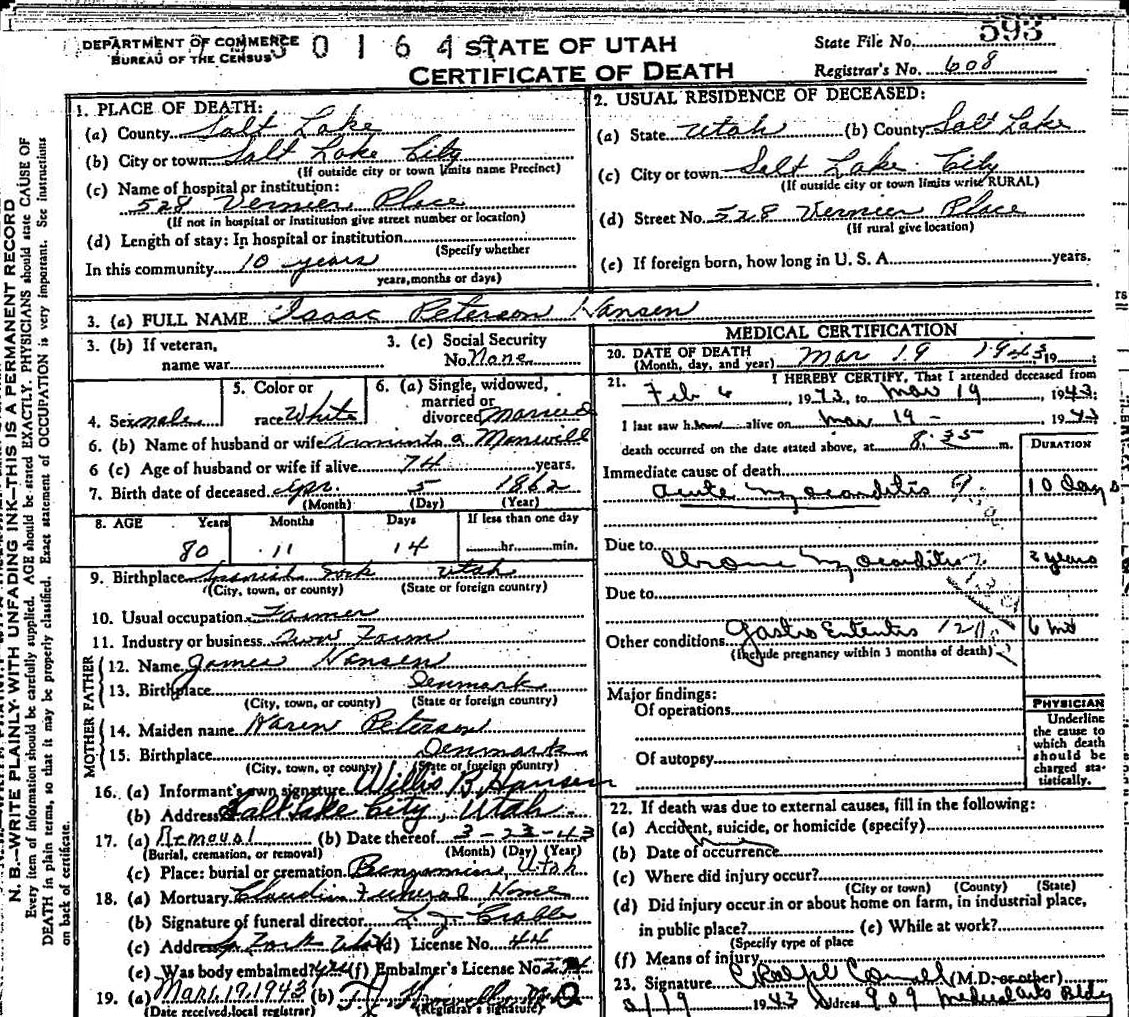 593
DEPARTMENT OF COMMERCE
BUREAU OF THE CENSUS
STATE OF UTAH
State File No.
CERTIFICATE OF DEATH
Registrar's No. 608
N. B.—WRITE PLAINLY WITH UNFADING INK—THIS IS A PERMANENT RECORD
Every item of information should be carefully supplied. AGE should be stated EXACTLY. PHYSICIANS should state CAUSE OF
DEATH in plain terms, so that it may be properly classified. Exact statement of OCCUPATION is very important. See instructions
on back of certificate.
1. PLACE OF DEATH:
(a) County Salt Lake
(b) City or town Salt Lake City
(If outside city or town limits name Precinct)
(c) Name of hospital or institution:
528 Vernier Place
(If not in hospital or institution give street number or location)
(d) Length of stay: In hospital or institution
(Specify whether
In this community 10 years
years, months or days)
2. USUAL RESIDENCE OF DECEASED:
(a) State Utah (b) County Salt Lake
(c) City or town Salt Lake City
(If outside city or town limits write RURAL)
(d) Street No. 528 Vernier Place
(If rural give location)
(e) If foreign born, how long in U. S. A. years.
3. (a) FULL NAME Isaac Peterson Hansen
3. (b) If veteran,
name war
3. (c) Social Security
No. None
4. Sex male
5. Color or
race White
6. (a) Single, widowed,
married or
divorced Married
6. (b) Name of husband or wife
6 (c) Age of husband or wife if alive 74 years.
7. Birth date of deceased Apr. 5 1862
(Month) (Day) (Year)
8. AGE Years Months Days If less than one day
80 11 14 hr. min.
9. Birthplace Spanish Fork Utah
(City, town, or county) (State or foreign country)
10. Usual occupation Farmer
11. Industry or business Own Farm
FATHER
12. Name James Hansen
13. Birthplace Denmark
(City, town, or county) (State or foreign country)
MOTHER
14. Maiden name Karen Peterson
15. Birthplace Denmark
(City, town, or county) (State or foreign country)
16. (a) Informant's own signature Willis B. Hansen
(b) Address Salt Lake City, Utah.
17. (a) Removal (b) Date thereof 3-23-43
(Burial, cremation, or removal) (Month) (Day) (Year)
(c) Place: burial or cremation Benjamin, Utah
18. (a) Mortuary Claudin Funeral Home
(b) Signature of funeral director
(c) Address Sp. Fork Utah (d) License No. 44
(e) Was body embalmed? yes (f) Embalmer's License No.
19. (a) Mar. 19, 1943 (b)
(Date received local registrar) (Registrar's signature)
MEDICAL CERTIFICATION
20. DATE OF DEATH Mar 19 1943 19
(Month, day, and year)
21. I HEREBY CERTIFY, That I attended deceased from
Feb 6 1943, to Mar 19 1943;
I last saw h alive on Mar 19 - 1943
death occurred on the date stated above, at 8:35 m.
DURATION
Immediate cause of death
Acute Myocarditis 10 days
Due to
Chronic Myocarditis years
Due to
Other conditions Gastro Enteritis 6 mo
(Include pregnancy within 3 months of death)
Major findings:
Of operations
Of autopsy
PHYSICIAN
Underline
the cause to
which death
should be
charged sta-
tistically.
22. If death was due to external causes, fill in the following:
(a) Accident, suicide, or homicide (specify)
(b) Date of occurrence
(c) Where did injury occur?
(City or town) (County) (State)
(d) Did injury occur in or about home on farm, in industrial place,
in public place? (e) While at work?
(Specify type of place
(f) Means of injury
23. Signature (M.D. or other)
3/19 1943 Address 909 Medical Arts Bldg